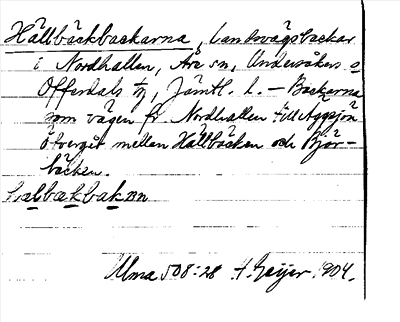 Hällbäckbackarna, landsvägsbackar
i Nordhallen, Åre sn, Undersåkers o
Offerdals tg, Jämtl. l. – Backarna
som vägen fr. Nordhallen till Äggsjön
övergår mellan Hällbäcken och Björ-
bäcken.
Ulma 508:28 A. Geijer. 1904.